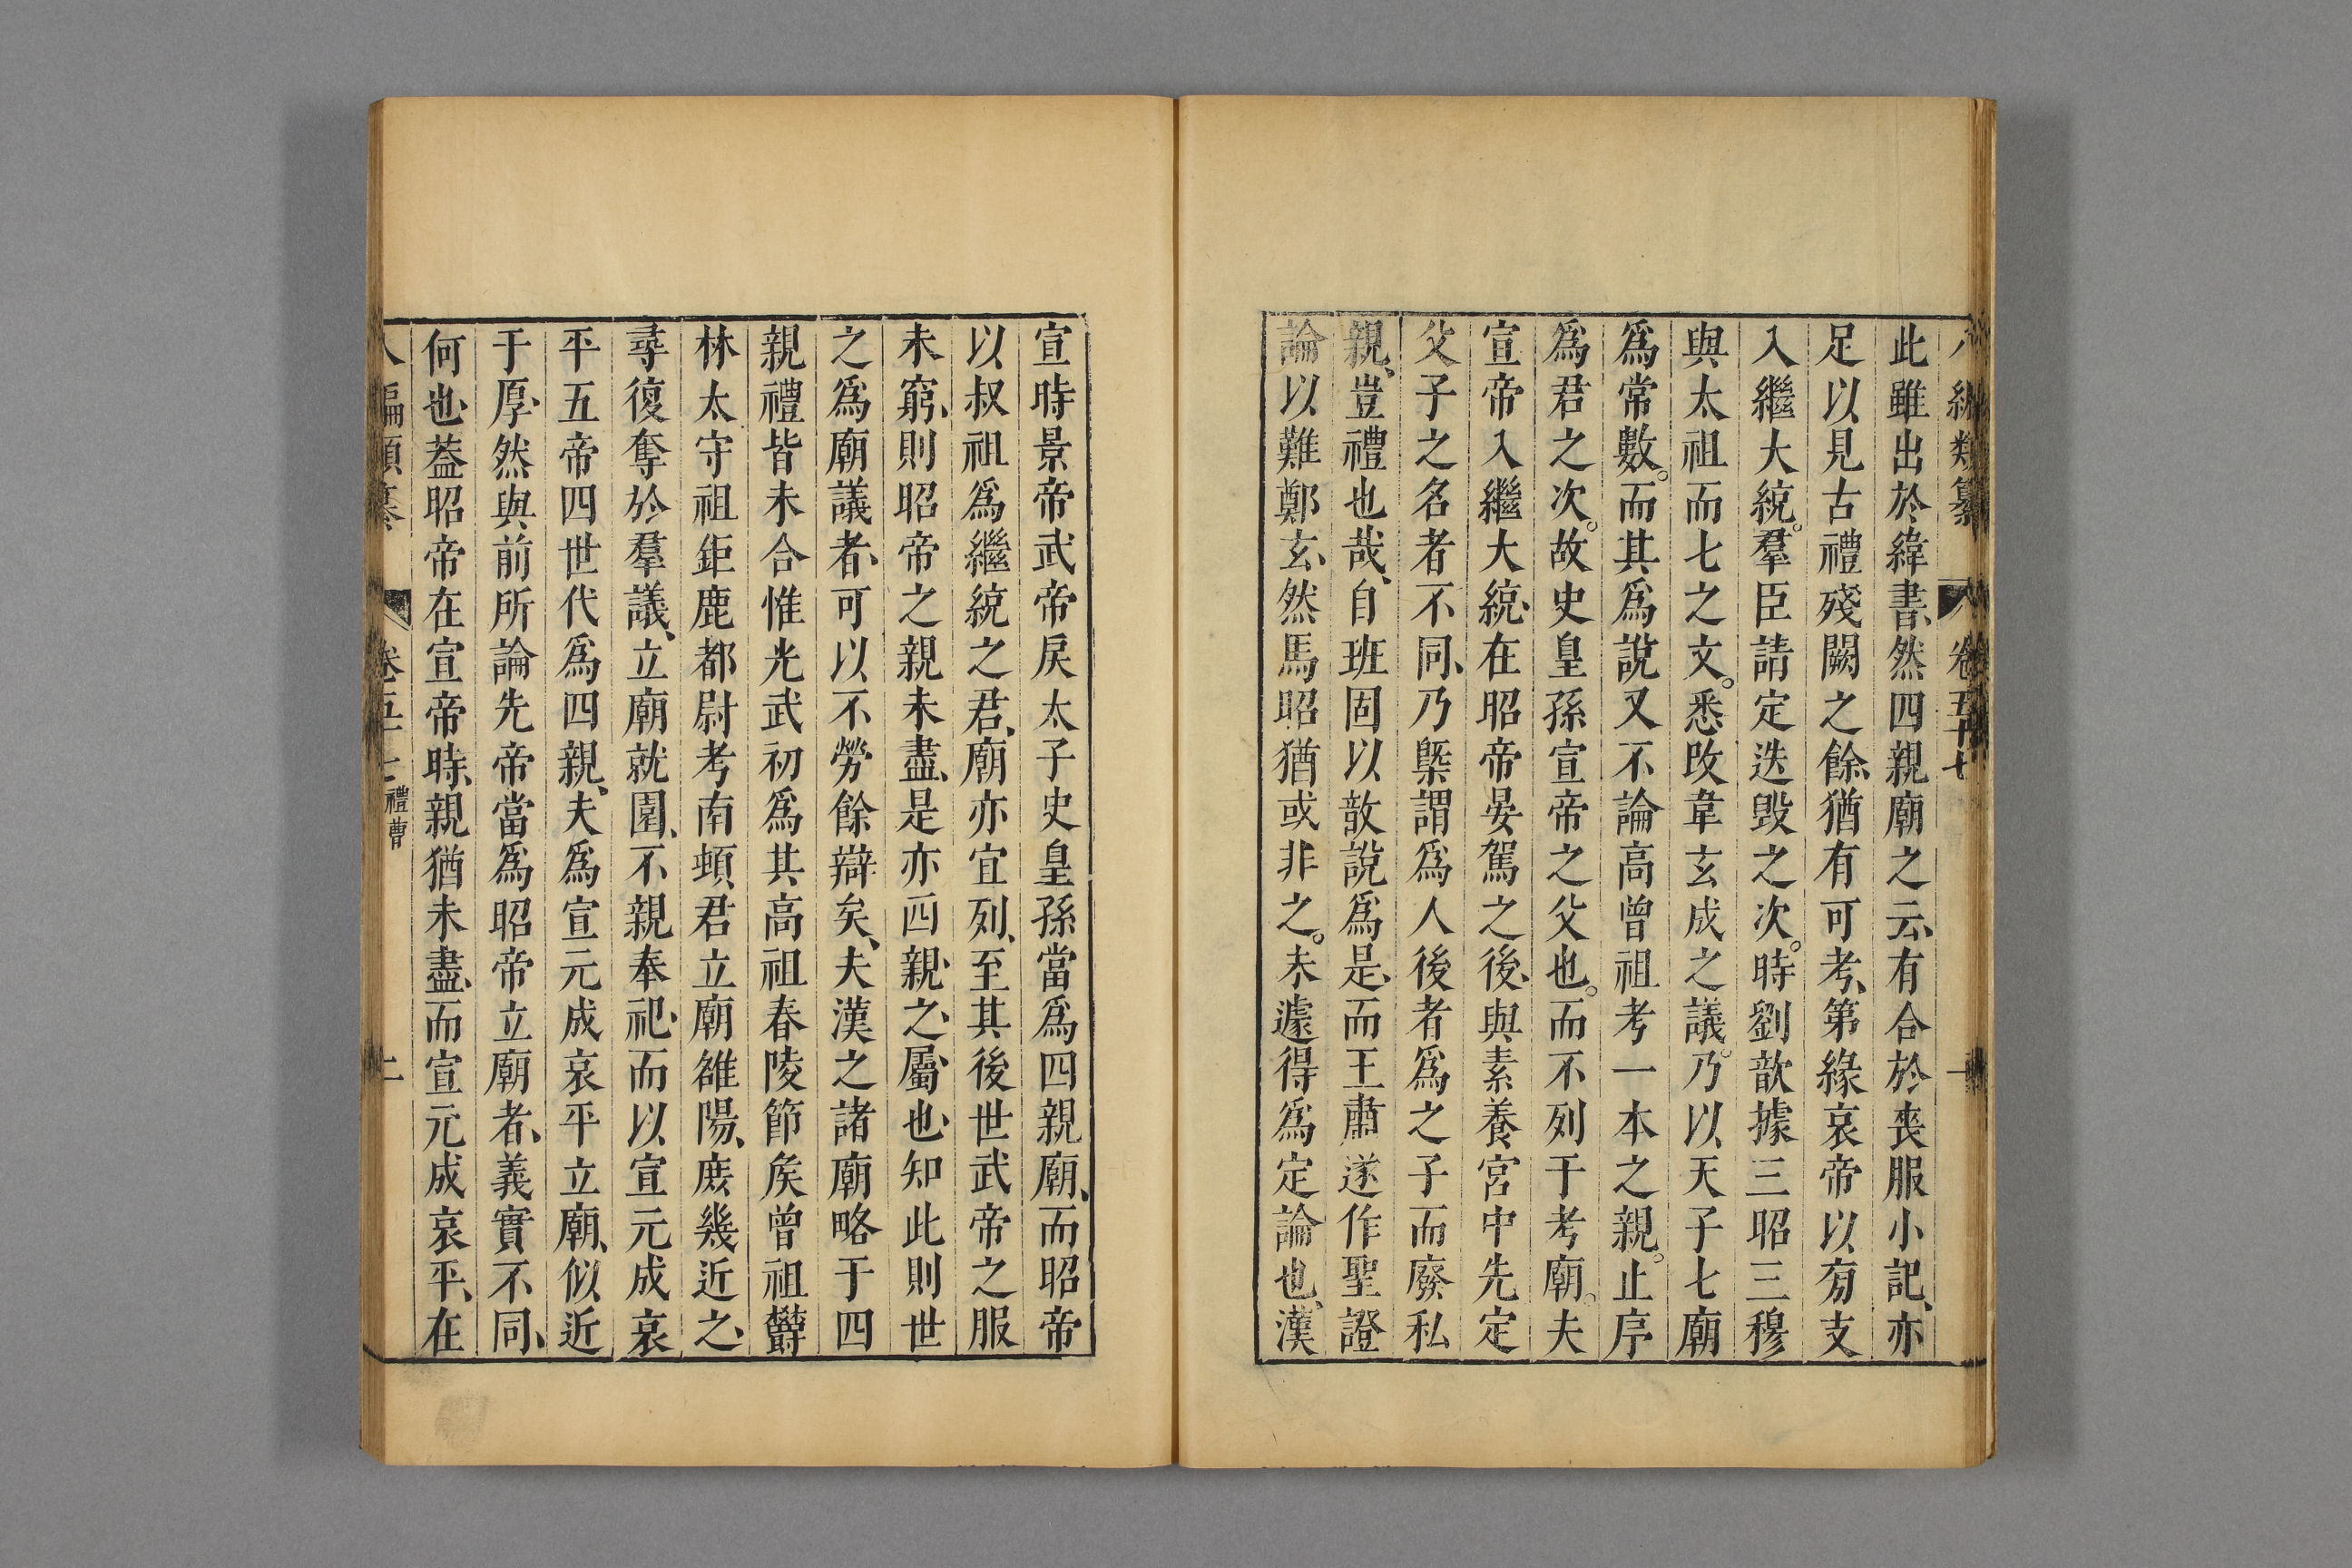 八編類纂 卷五十七 一
此雖出於緯書、然四親廟之云、有合於喪服小記、亦
足以見古禮殘闕之餘、猶有可考、第緣哀帝以旁支
入繼大統。羣臣請定迭毀之次。時劉歆據三昭三穆
與太祖而七之文。悉改韋玄成之議。乃以天子七廟
爲常數。而其爲說又不論高曾祖考一本之親。止序
爲君之次。故史皇孫宣帝之父也。而不列于考廟。夫
宣帝入繼大統、在昭帝晏駕之後、與素養宮中先定
父子之名者不同、乃槩謂爲人後者爲之子而廢私
親、豈禮也哉、自班固以歆說爲是、而王肅遂作聖證
論以難鄭玄、然馬昭猶或非之。未遽得爲定論也、漢
宣時景帝武帝戾太子史皇孫當爲四親廟、而昭帝
以叔祖爲繼統之君、廟亦宜列、至其後世武帝之服
未窮、則昭帝之親未盡、是亦四親之屬也、知此則世
之爲廟議者、可以不勞餘辯矣、夫漢之諸廟略于四
親禮皆未合惟光武初爲其高祖春陵節矦曾祖欝
林太守祖鉅鹿都尉考南頓君立廟雒陽、庶幾近之、
尋復奪於羣議、立廟就園、不親奉祀、而以宣元成哀
平五帝四世代爲四親、夫爲宣元成哀平立廟、似近
于厚、然與前所論先帝當爲昭帝立廟者、義實不同、
何也、葢昭帝在宣帝時、親猶未盡、而宣元成哀平、在
八編類纂 卷五十七 禮曹 二